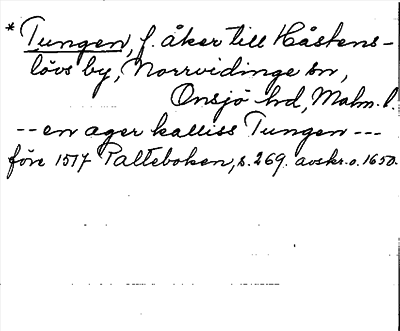 * Tungen, f. åker till Håstens-
lövs by, Norrvidinge sn,
Onsjö hd, Malm. l.
-- en ager kalliss Tungen ---
före 1517 Palteboken, s. 269. avskr. o. 1650.